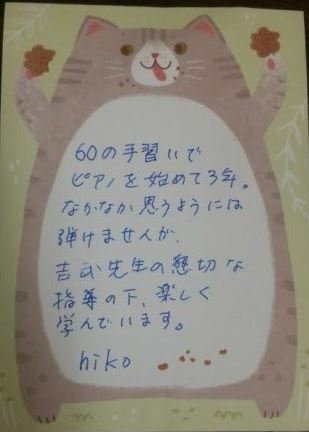 60の手習いで
ピアノを始めて3年。
なかなか思うようには
弾けませんが、
吉武先生の懇切な
指導の下、楽しく
学んでいます。
hiko